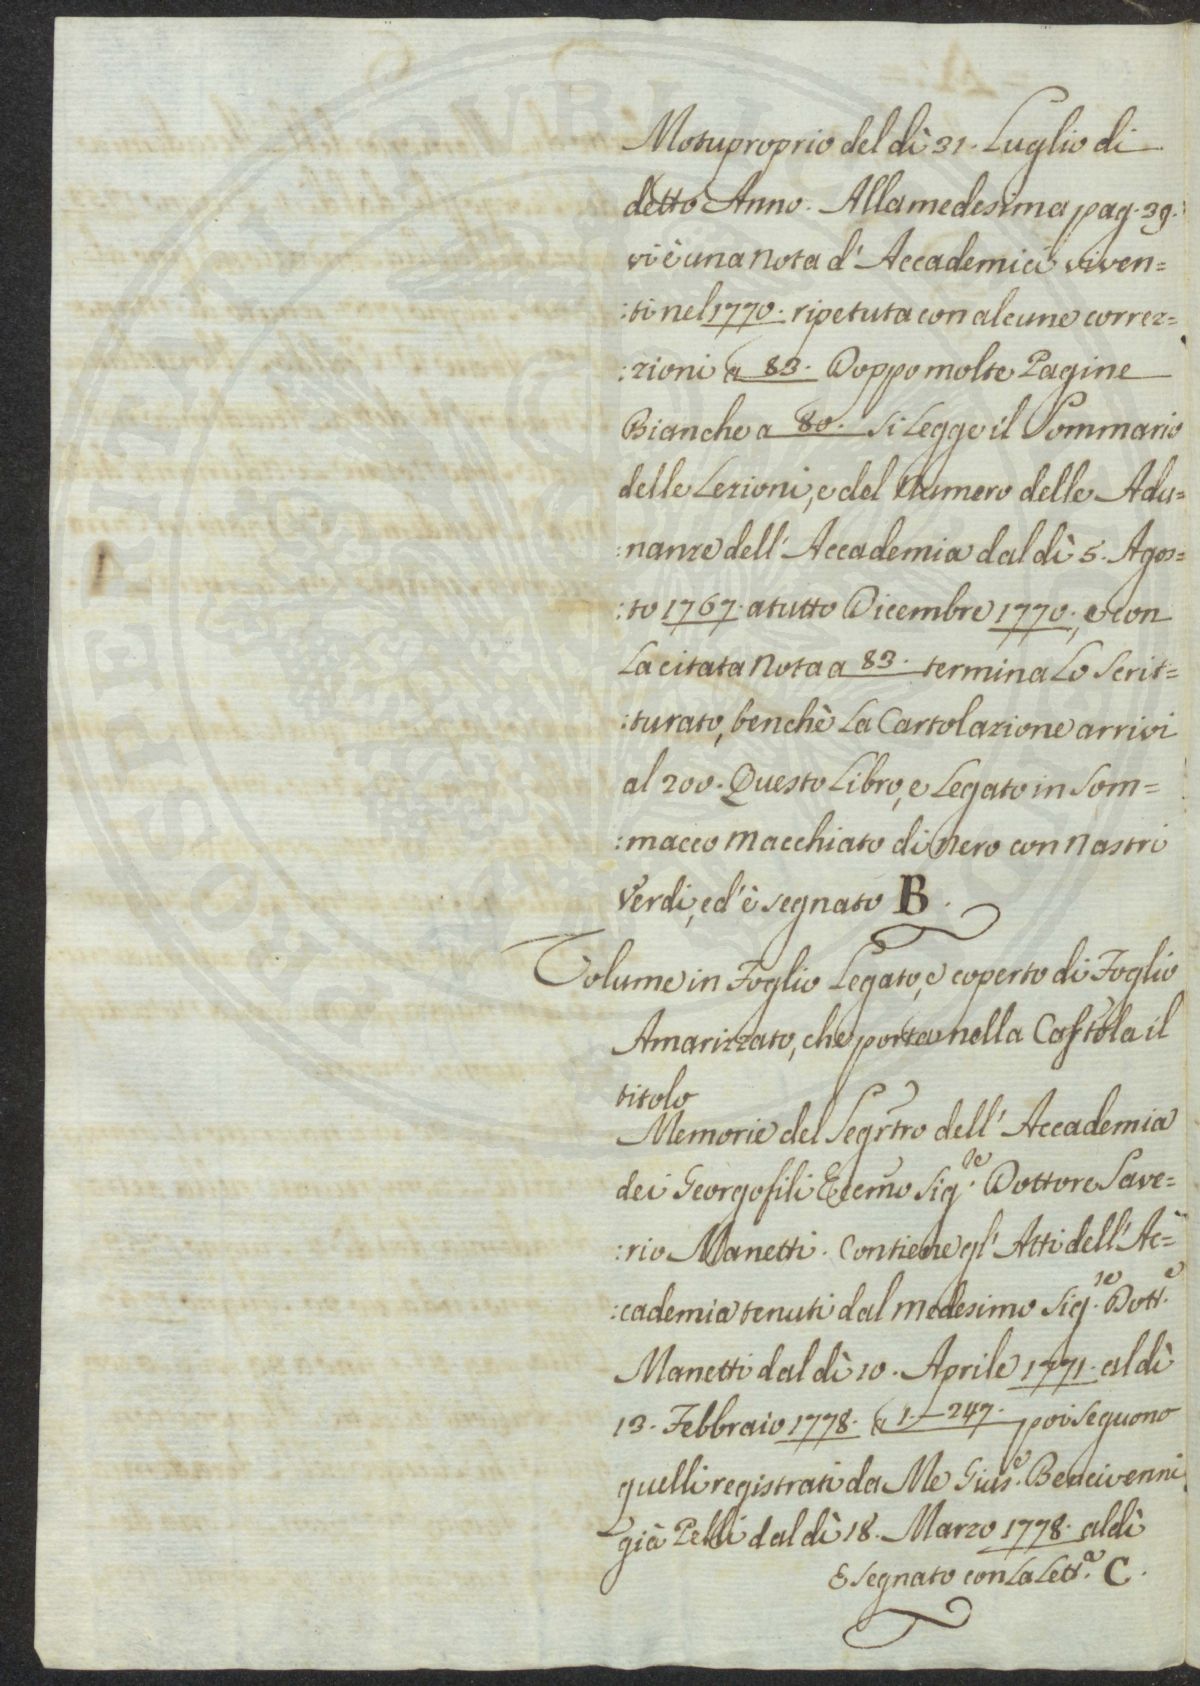 Motuproprio del dì 31. Luglio di
detto Anno. Alla medesima pag. 39.
vi è una nota d' Accademici viven=
:ti nel 1770. ripetuta con alcune correz=
:zioni a 83. Doppo molte Pagine
Bianche a 80. si Legge il Sommario
delle Lezioni, e del Numero delle Adu=
:nanze dell' Accademia dal dì 5. Agos=
:to 1767. a tutto Dicembre 1770., e con
La citata Nota a 83. termina Lo Scrit=
:turato, benchè La Cartolazione arrivi
al 200. Questo Libro, e Legato in Som=
:macco Macchiato di Nero con Nastri
Verdi, ed' è segnato B.
Volume in Foglio Legato, e coperto di Foglio
Amarizzato, che porta nella Costola il
titolo
Memorie del Segrtro dell' Accademia
dei Georgofili Eccmo Sig.re Dottore Save=
:rio Manetti. Contiene gl' Atti dell' Ac=
:cademia tenuti dal medesimo Sig.re Dott.e
Manetti dal dì 10. Aprile 1771. al dì
13. Febbraio 1778. a 1.—247. poi seguono
quelli registrati da Me Gius.e Bencivenni
già Pelli dal dì 18. Marzo 1778. al dì
E segnato con La Lett.a C.